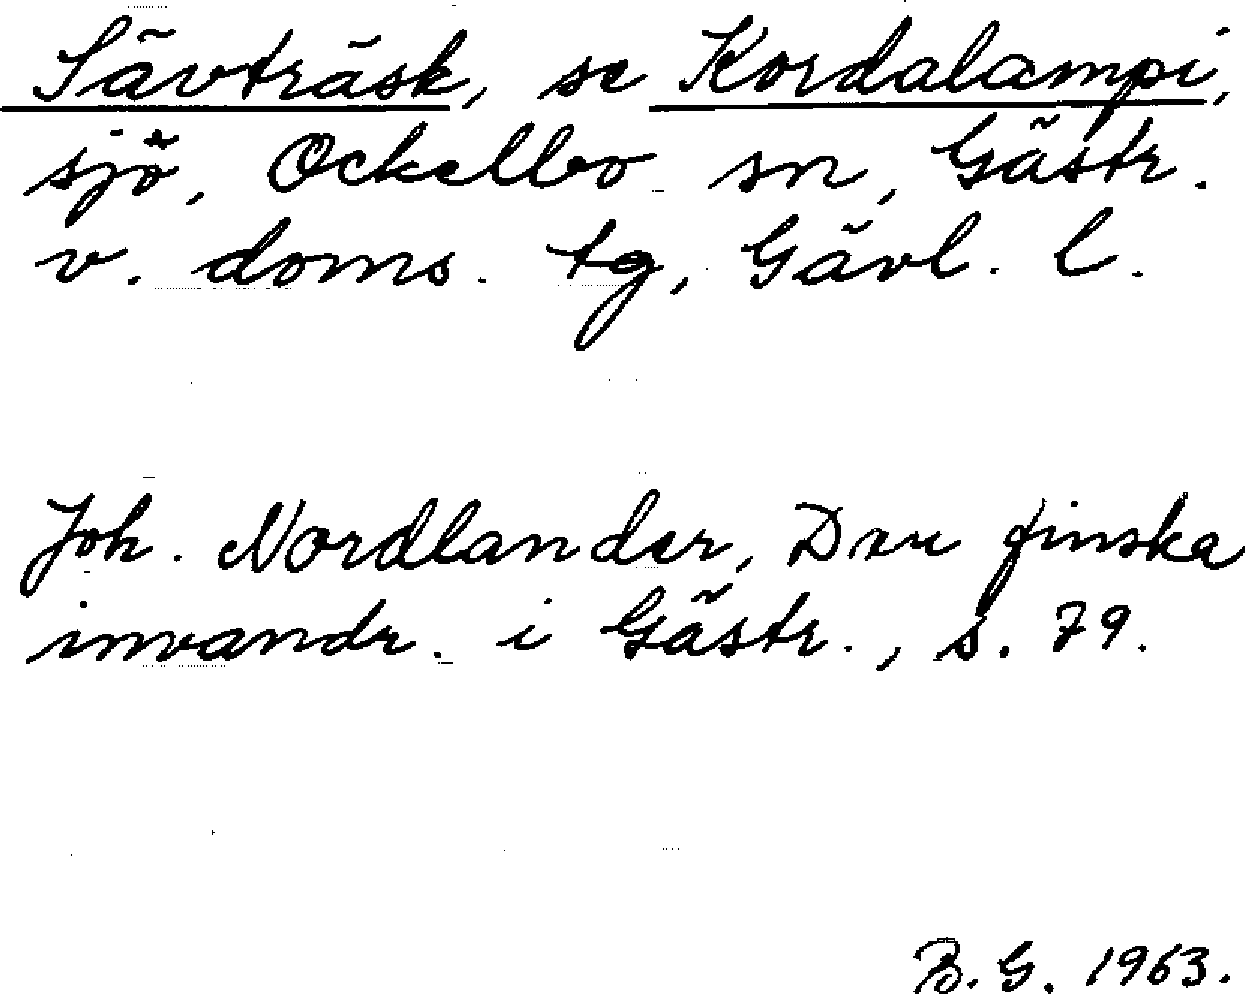 Sävträsk, se Kordalampi,
sjö, Ockelbo sn, Gästr.
v. doms. tg, Gävl. l.
Joh. Nordlander, Den finska
invandr. i Gästr., s. 79.
B. G. 1963.